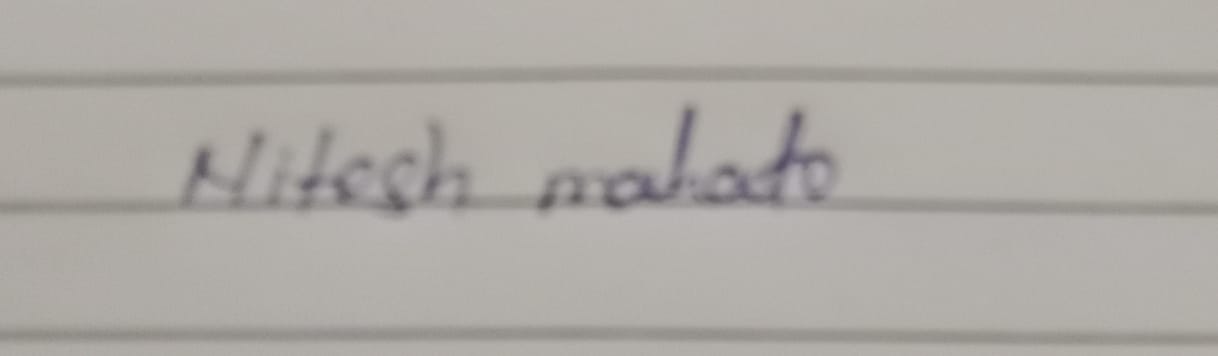 Nitesh mahato